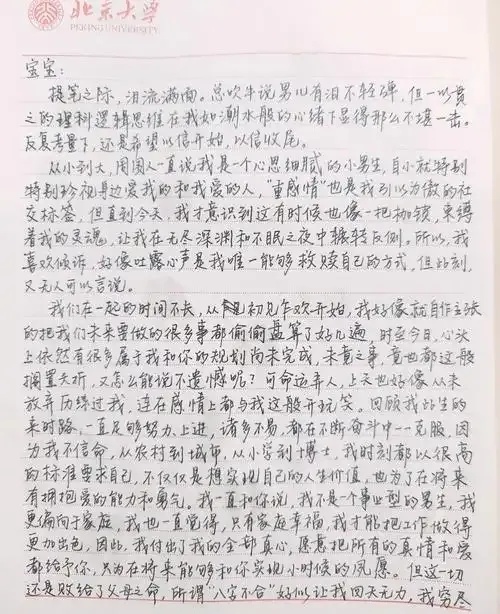 北京大学
PEKING UNIVERSITY
宝宝：
提笔之际，泪流满面。总吹牛说男儿有泪不轻弹，但一以贯
之的理科逻辑思维在我如潮水般的心绪下显得那么不堪一击。
反复考量下，还是希望以信开始，以信收尾。
从小到大，周围人一直说我是个心思细腻的小男生，自小就特别
特别珍视身边爱我的和我爱的人，"重感情"也是我引以为傲的社
交标签，但直到今天，我才意识到这有时候也像一把枷锁，束缚
着我的灵魂，让我在无尽深渊和不眠之夜中辗转反侧。所以，我
喜欢倾诉，好像吐露心声是我唯一能够救赎自己的方式，但此刻，
又无人可以言说。
我们在一起的时间不长，从初见乍欢开始，我好像就自作主张
的把我们未来要做的很多事都偷偷盘算了好几遍，时至今日，心头
上依然有很多属于我和你的规划尚未完成，未竟之事，竟也都这般
搁置夭折，又怎么能说不遗憾呢？可命运弄人，上天也好像从未
放弃历练过我，连在感情上都与我这般开玩笑。回顾我此生的
来时路，一直足够努力、上进，诸多不易，都在不断奋斗中一一克服，因
为我不信命，从农村到城市，从小学到博士，我时刻都以很高
的标准要求自己，不仅仅是想实现自己的人生价值，也为了在将来
有拥抱爱的能力和勇气。我一直和你说，我不是个事业型的男生，我
更偏向于家庭，我也一直觉得，只有家庭幸福，我才能把工作做得
更加出色，因此，我付出了我的全部真心，愿意把所有的真情和爱
都给予你，只为在将来能够和你实现小时候的夙愿。但这一切
还是败给了父母之命，所谓"八字不合"好似让我回天无力，我穷尽